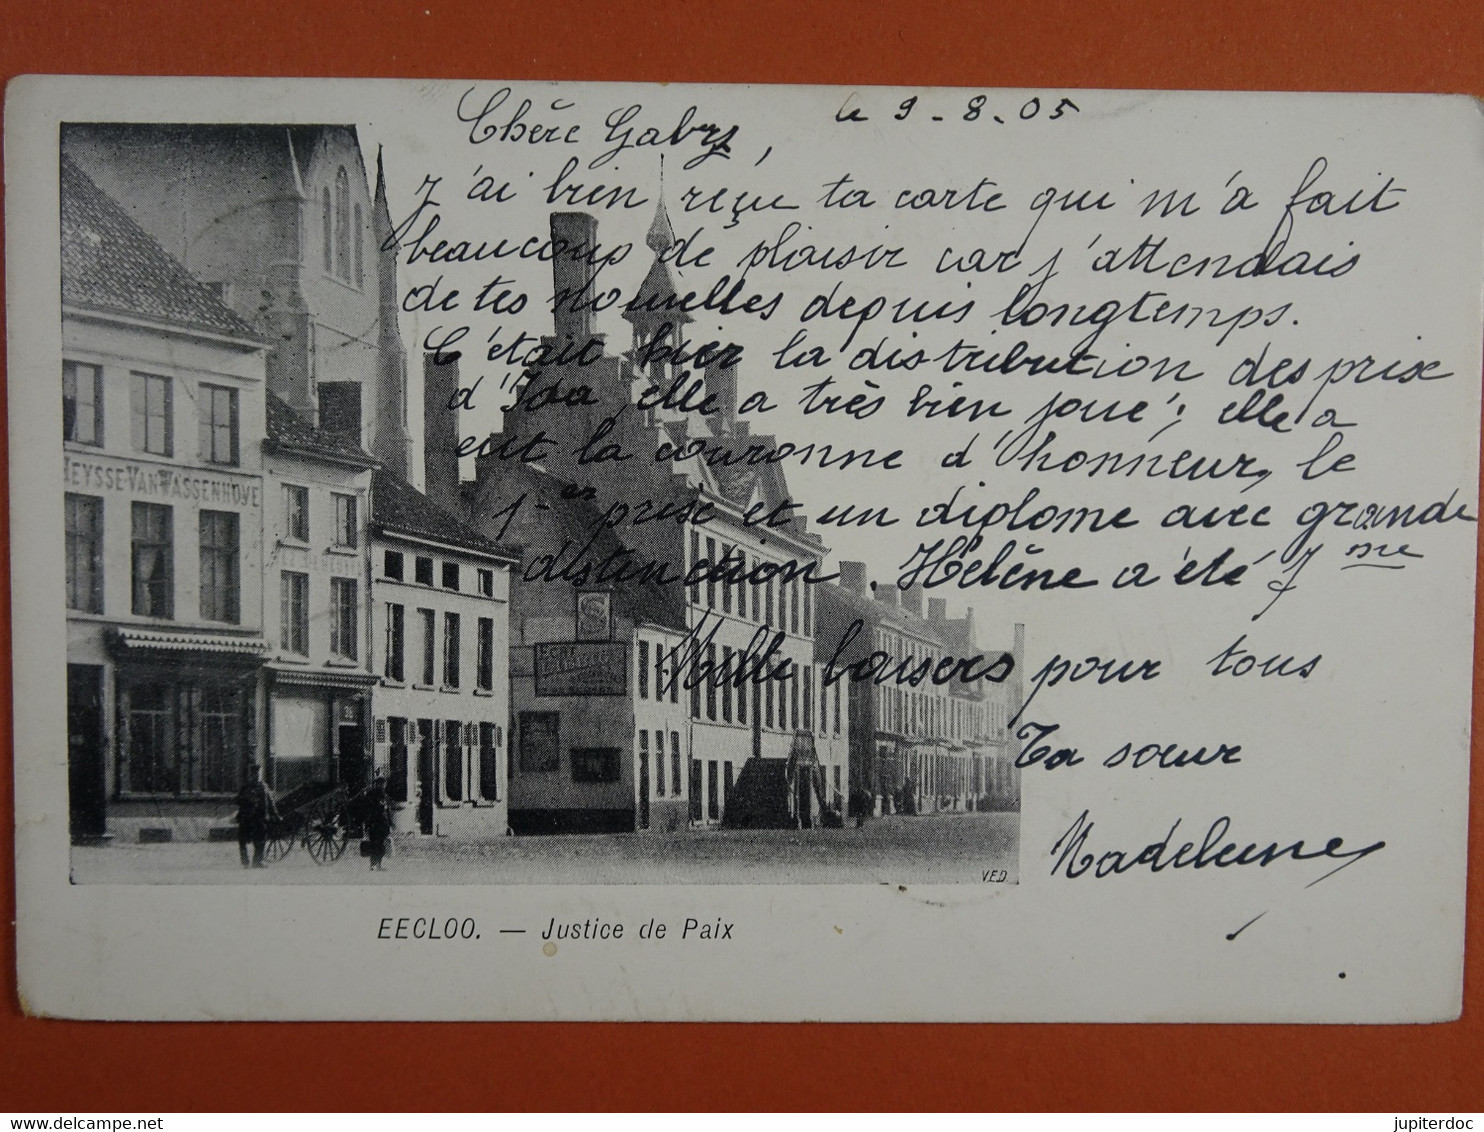 le 9-8-05
Chère Gaby,
J'ai bien reçue ta carte qui m'a fait
beaucoup de plaisir car j'attendais
de tes nouvelles depuis longtemps.
C'était hier la distribution des prix
d'Ida, elle a très bien joué; elle a
eut la couronne d'honneur, le
1er prix et un diplome avec grande
distinction. Hélène a été 7me
Mille baisers pour tous
Ta sœur
Madeleine
HEYSSE-VAN WASSENHOVE
V.E.D.
EECLOO. — Justice de Paix
jupiterdoc